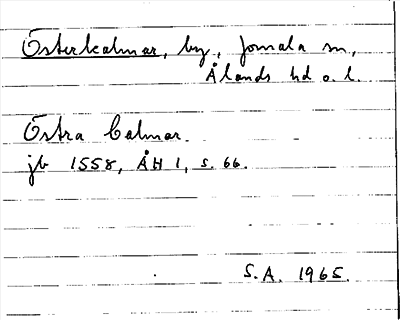 Österkalmar, by, Jomala sn,
Ålands hd o. l.
Östra Calmar.
jb 1558, ÅH 1, s. 66.
S.A. 1965.